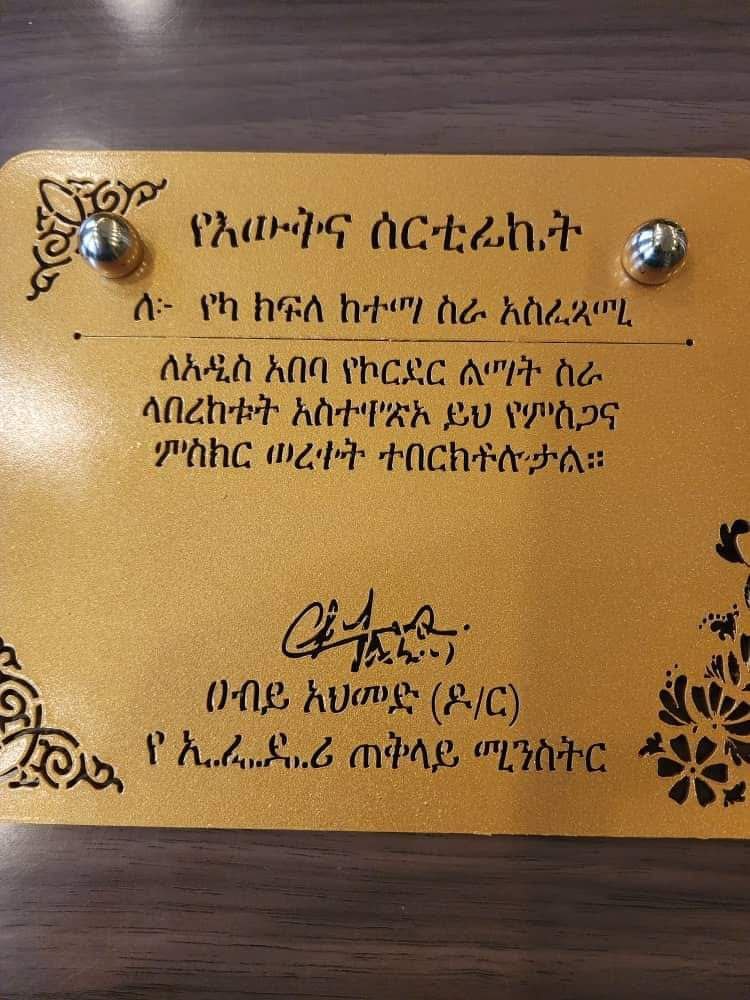 የእውቅና ሰርቲፊኬት
ለ፦ የካ ክፍለ ከተማ ስራ አስፈጻሚ
ለአዲስ አበባ የኮርደር ልማት ስራ
ላበረከቱት አስተዋጽኦ ይህ የምስጋና
ምስክር ወረቀት ተበርክቶሎታል።
ዐብይ አህመድ (ዶ/ር)
የ ኢ.ፌ.ዴ.ሪ ጠቅላይ ሚንስትር